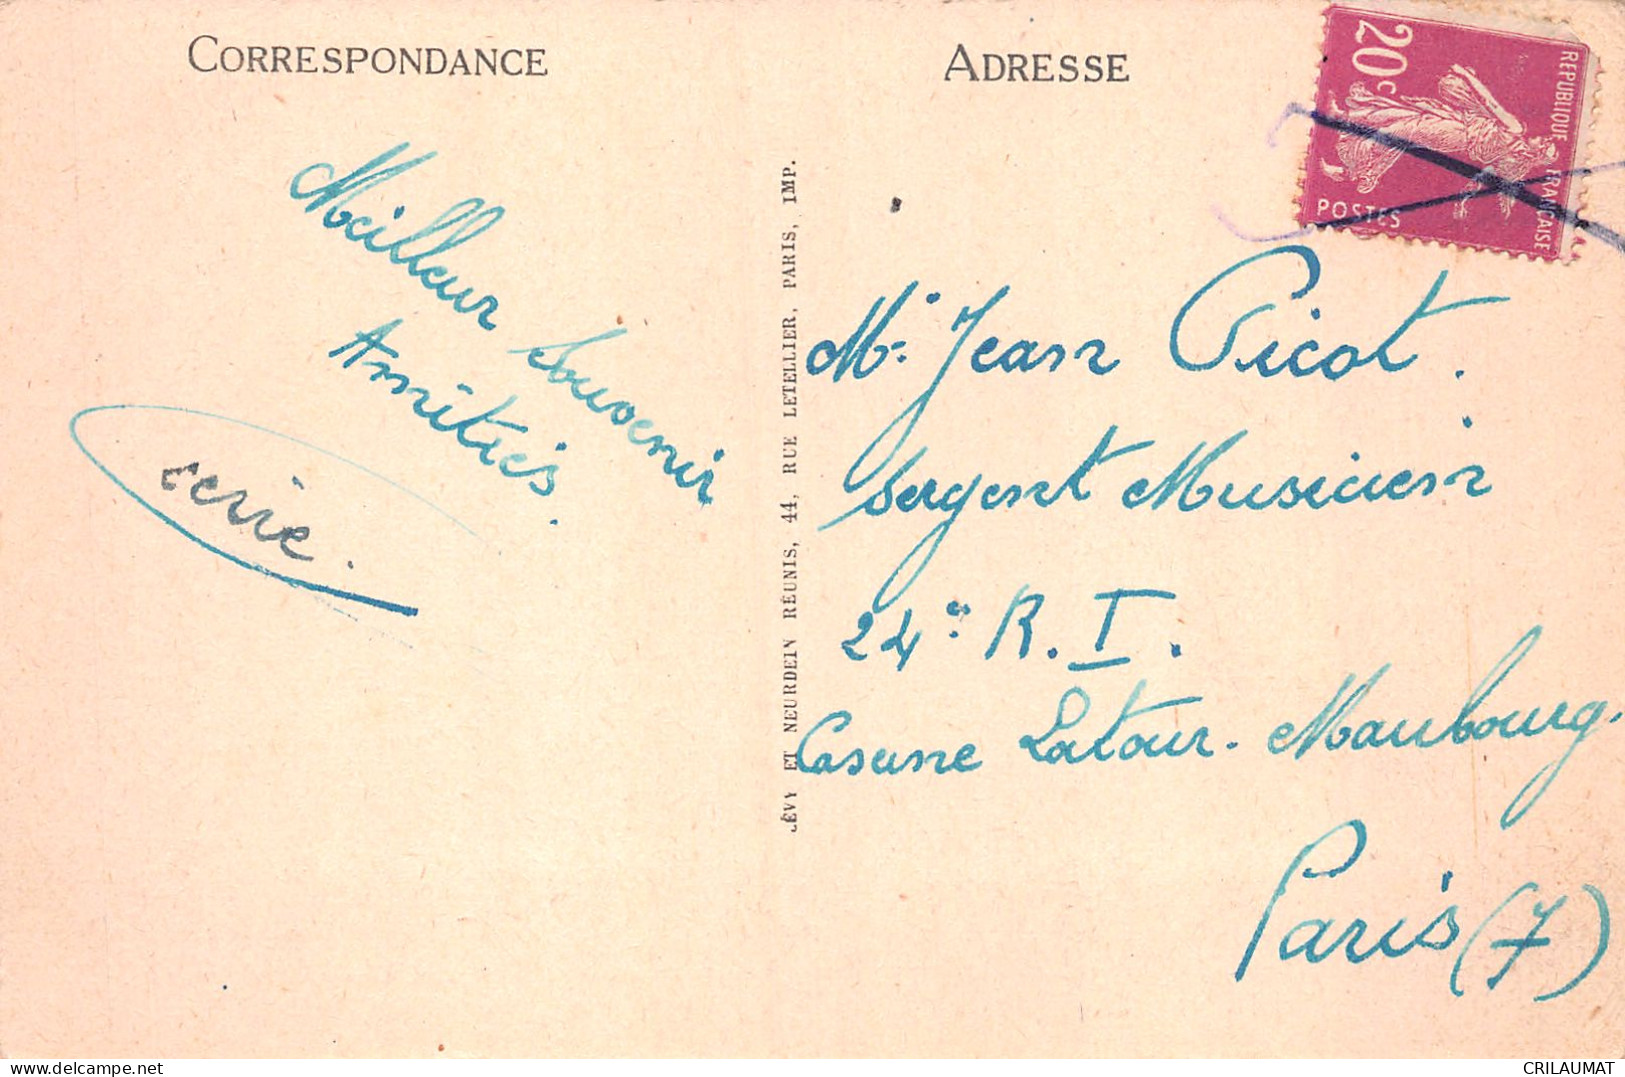 CORRESPONDANCE
Meilleur Souvenir
Amitiés.
ADRESSE
20c
REPUBLIQUE FRANCAISE
POSTES
LÉVY ET NEURDEIN RÉUNIS, 44, RUE LETELLIER, PARIS, IMP.
Mr. Jean Picot.
Sergent Musicien
24e R. I.
Caserne Latour-Maubourg.
Paris (7)
delcampe.net
CRILAUMAT